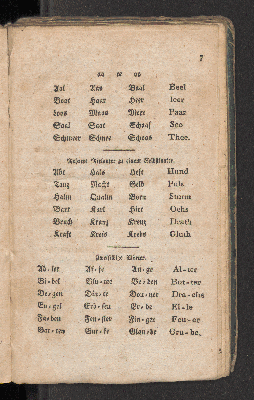 7
aa ee oo
Aal Aas Beel
Boot Haar Heer leer
Loos Moos Meer Paar
Saal Saat Schaaf See
Schmeer Schnee Schoos Thee.
Mehrere Mitlauter zu einem Selbstlauter.
Abt Hals Heft Hund
Tanz Macht Geld Puls
Hahn Qualm Born Sturm
Bart Karl Hirt Ochs
Bauch Kranz Kreuz Draht
Kraft Kreis Krebs Gluth
Zweisilbige Wörter.
Ad-ler Af-fe Au-ge Al-ter
Bi-bel Blu-me Bo-den But-ter
De-gen Di-ne Don-ner Dra-che
En-gel Erb-sen Er-de Ei-le
Fa-den Fen-ster Fin-ger Feu-er
Gar-ten Gur-ke Glau-be Gru-be.